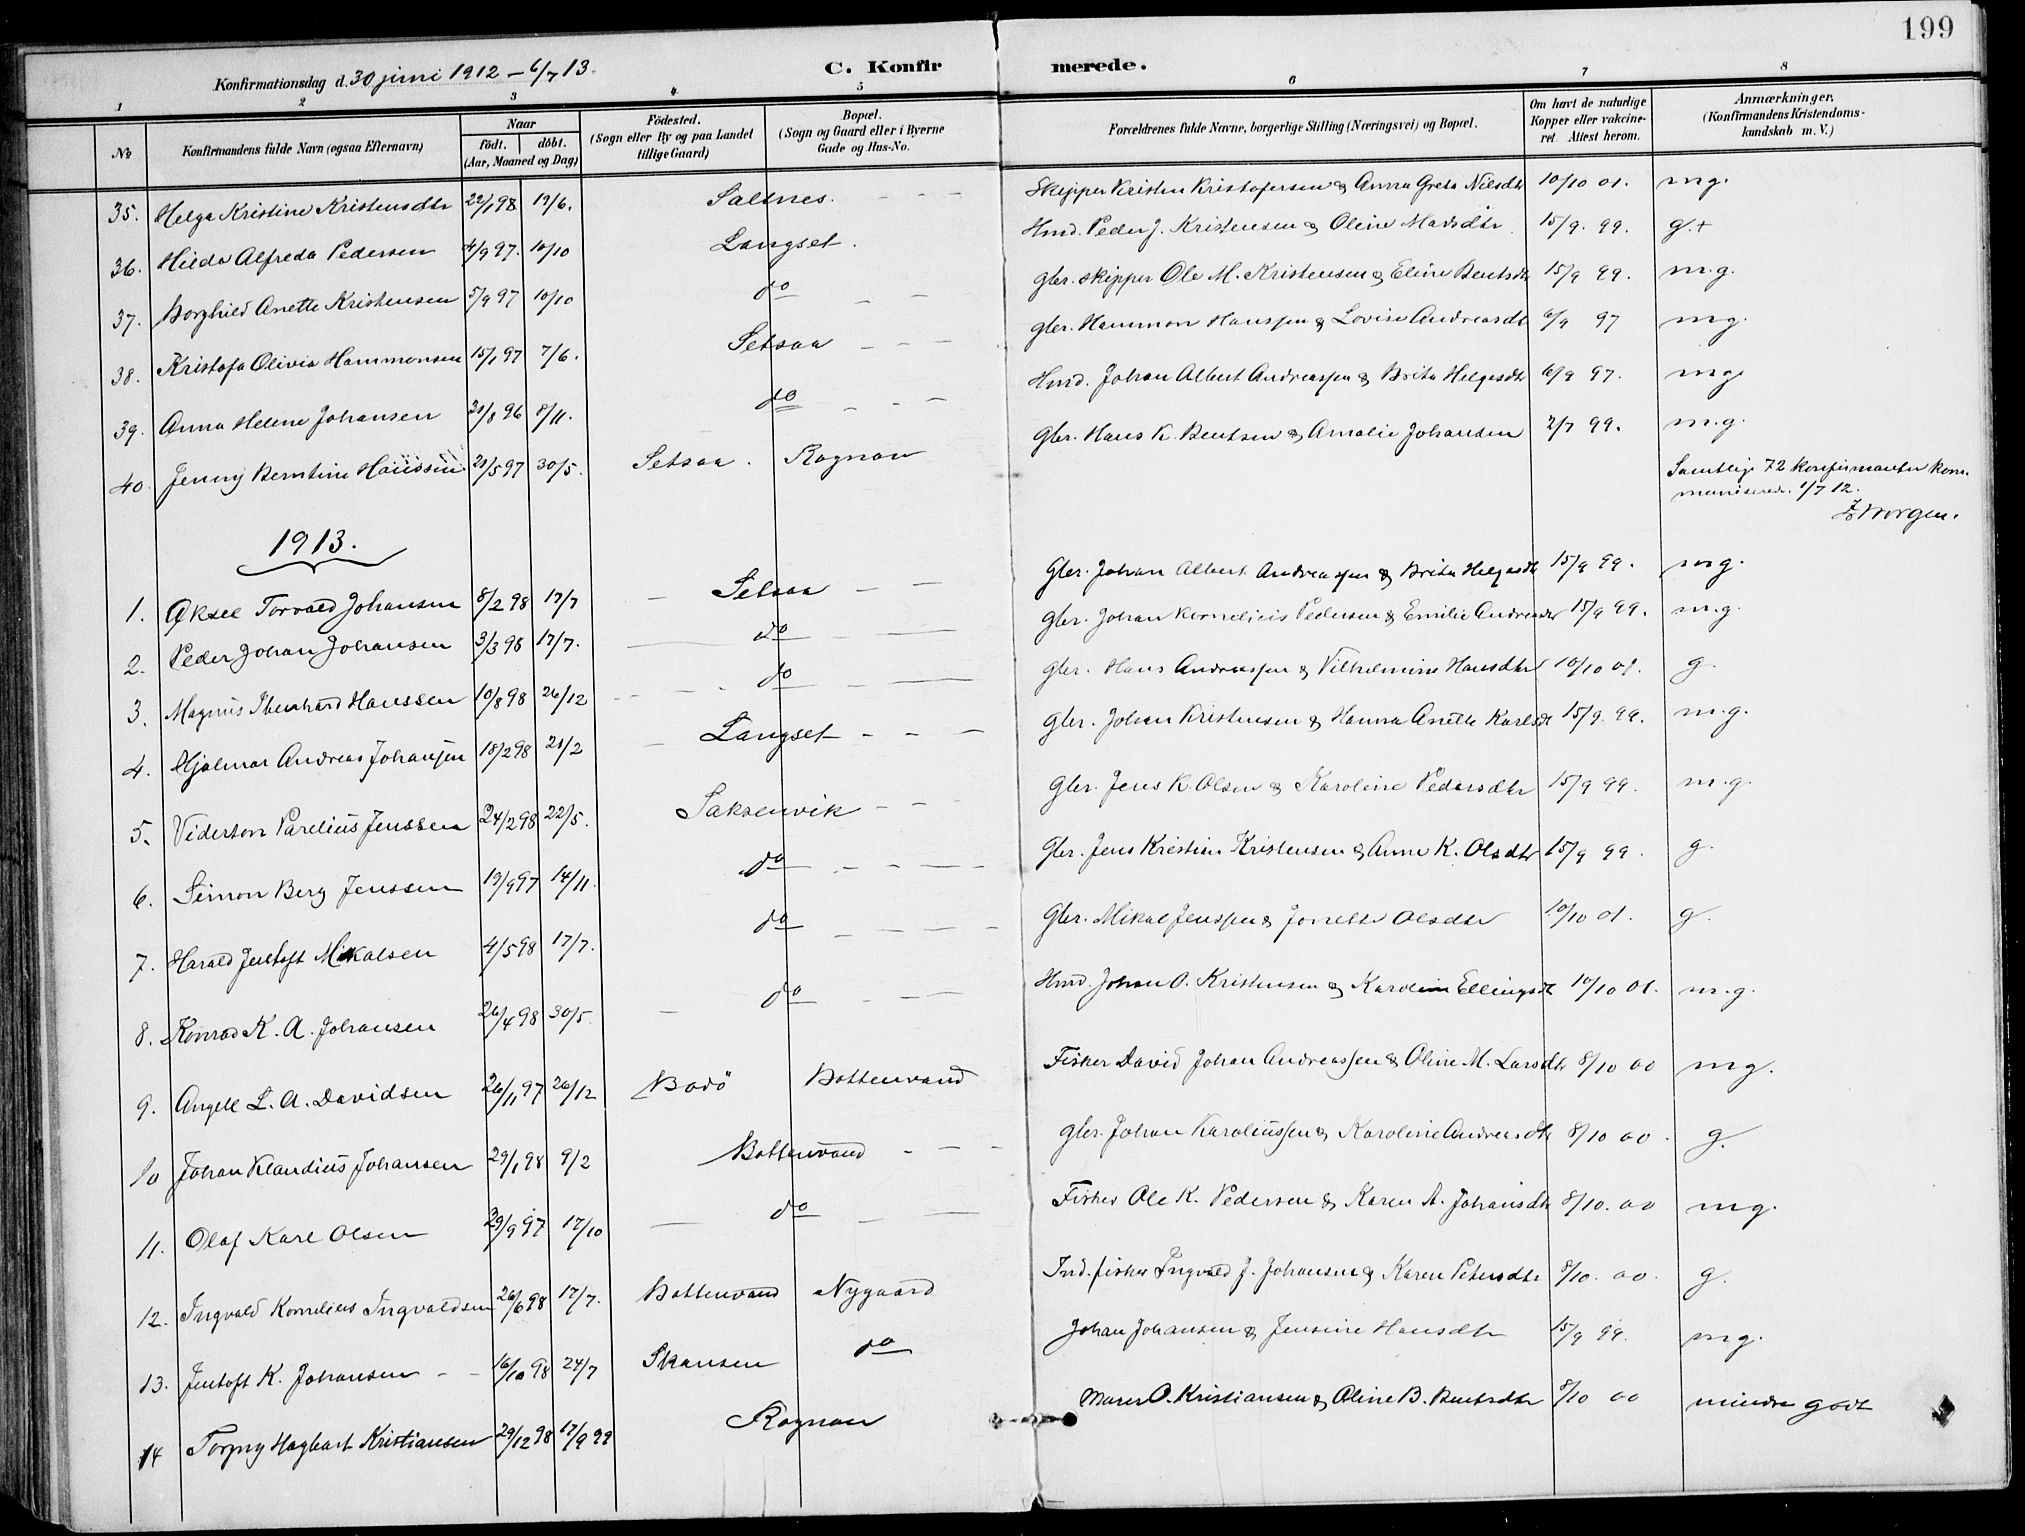 199
Konfirmationsdag d. 30 juni 1912 – 6/7 13.
C. Konfirmerede.
1 2 3 4 5 6 7 8
No
Konfirmandens fulde Navn (ogsaa Efternavn)
Naar
födt. döbt.
(Aar, Maaned og Dag)
Födested.
(Sogn eller By og paa Landet
tillige Gaard)
Bopæl.
(Sogn og Gaard eller i Byerne
Gade og Hus-No.
Forældrenes fulde Navne, borgerlige Stilling (Næringsvei) og Bopæl.
Om havt de naturlige
Kopper eller vakcine-
ret. Attest herom.
Anmærkninger.
(Konfirmandens Kristendoms-
kundskab m. V.)
35. Helga Kristine Kristensdtr 22/1 98 19/6. Saltnes. Skipper Kristen Kristofersen & Anna Greta Nilsdtr 10/10 01. mg.
36. Hilda Alfreda Pedersen 4/9 97. 10/10 Langset. Hmd. Peder J. Kristensen & Oline Marsdtr 15/9. 99. g.+
37. Borghild Anette Kristensen 5/9 97 10/10 do gbr. skipper Ole M. Kristensen & Eline Bentsdtr 15/9 99. m.g.
38. Kristofa Olivia Hammonsen 15/1 97 7/6. Setsaa gbr. Hammon Hanssen & Lovise Andreasdtr 6/9 97 mg.
39. Anna Helene Johansen 31/8 96 8/11. do Hmd. Johan Albert Andreassen & Brita Helgesdtr 6/9 97. mg
40. Jenny Berntine Hanssen 21/5 97 30/5. Setsaa. Rognan Gbr. Hans K. Bentsen & Amalie Johansen 2/7 99. m.g.
Samtlige 72 konfirmanter kom-
muniserede 1/7 12.
Borgen.
1913.
1. Aksel Torvald Johansen 8/2 98 17/7 Setsaa Gbr. Johan Albert Andreassen & Brita Helgesdtr 15/9 99. mg.
2. Peder Johan Johansen 3/3 98 17/7. do Gbr. Johan Kornelius Pedersen & Emilie Andreasdtr 15/9 99. m.g.
3. Magnus Ibenhard Hanssen 10/8 98 26/12 do gbr. Hans Andreassen & Vilhelmine Hansdtr 10/10 01. g.
4. Hjalmar Andreas Johansen 18/2 98 21/2 Langset gbr. Johan Kristensen & Hanna Anette Karlsdtr 15/9. 99. m.g.
5. Viderton Parelius Jenssen 24/2 98 22/5. Saksenvik gbr. Jens K. Olsen & Karoline Pedersdtr 15/9 99. m.g.
6. Simon Berg Jenssen 19/9 97 14/11. do Gbr. Jens Kristian Kristensen & Anne K. Olsdtr 15/9 99. g.
7. Harald Jentoft Mikalsen 4/5 98 17/7. do Gbr. Mikal Jenssen & Jonette Olsdtr 10/10 01. g.
8. Konrad K. A. Johansen 26/4 98 30/5. do Hmd. Johan O. Kristensen & Karoline Ellingsdtr 10/10 01. m.g.
9. Angell L. A. Davidsen 26/11 97 26/12 Bodö Bottenvand Fisker David Johan Andreassen & Oline M. Larsdtr 8/10 00 mg.
10 Johan Klaudius Johansen 29/1 98 9/2 Bottenvand gbr. Johan Karoliussen & Karoline Andreasdtr 8/10 00. g.
11. Olaf Karl Olsen 29/9 97 17/10 do Fisker Ole K. Pedersen & Karen A. Johansdtr 8/10. 00 mg.
12. Ingvald Kornelius Ingvaldsen 26/6 98 17/7. Bottenvand Nygaard Ind. fisker Ingvald J. Johansen & Karen Petersdtr 8/10. 00. g.
13. Jentoft K. Johansen 16/10 98 24/7 Skansen do Johan Johansen & Jensine Hansdtr 15/9 99. mg.
14 Torpny Hagbart Kristiansen 29/12 98 17/9 99 Rognan Murer O. Kristiansen & Oline B. Bentsdtr 8/10 00 mindre godt